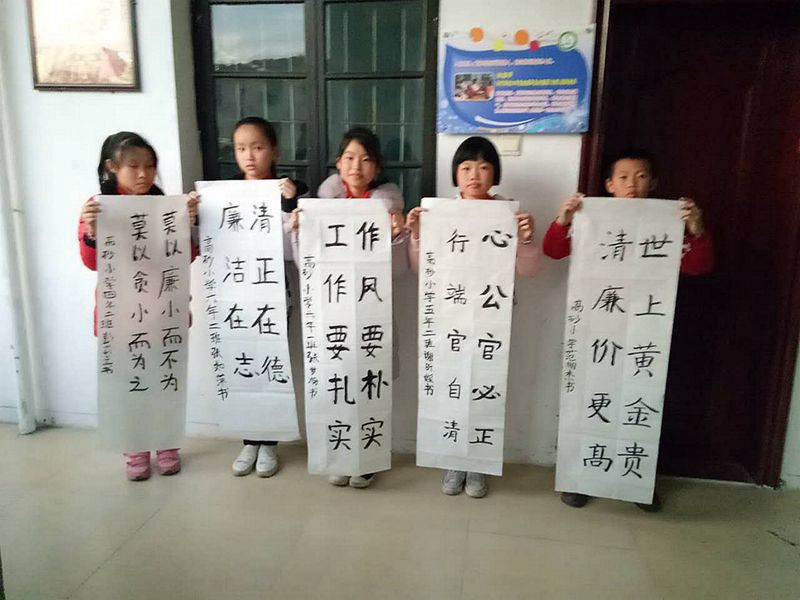 莫以廉小而不为
莫以贪小而为之
高砂小学四年二班彭书
清正在德
廉洁在志
高砂小学六年二班张书
作风要朴实
工作要扎实
高砂小学六年一班张书
心公官必正
行端官自清
高砂小学五年二班谢书
世上黄金贵
清廉价更高
高砂小学范明书